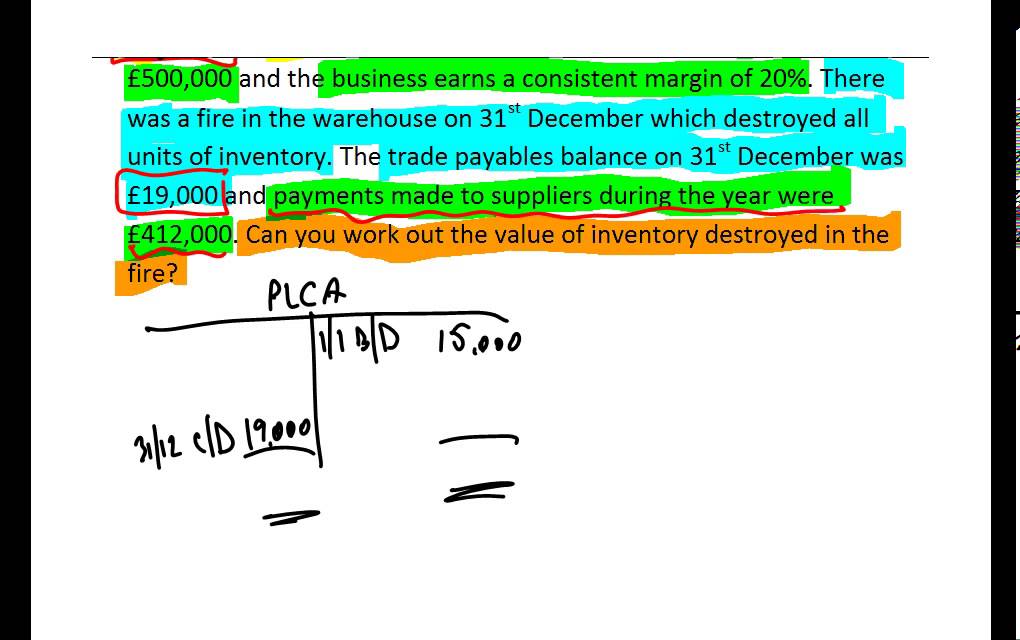 £500,000 and the business earns a consistent margin of 20%. There
was a fire in the warehouse on 31st December which destroyed all
units of inventory. The trade payables balance on 31st December was
£19,000 and payments made to suppliers during the year were
£412,000. Can you work out the value of inventory destroyed in the
fire?
PLCA
1/1 B/D 15,000
31/12 C/D 19,000